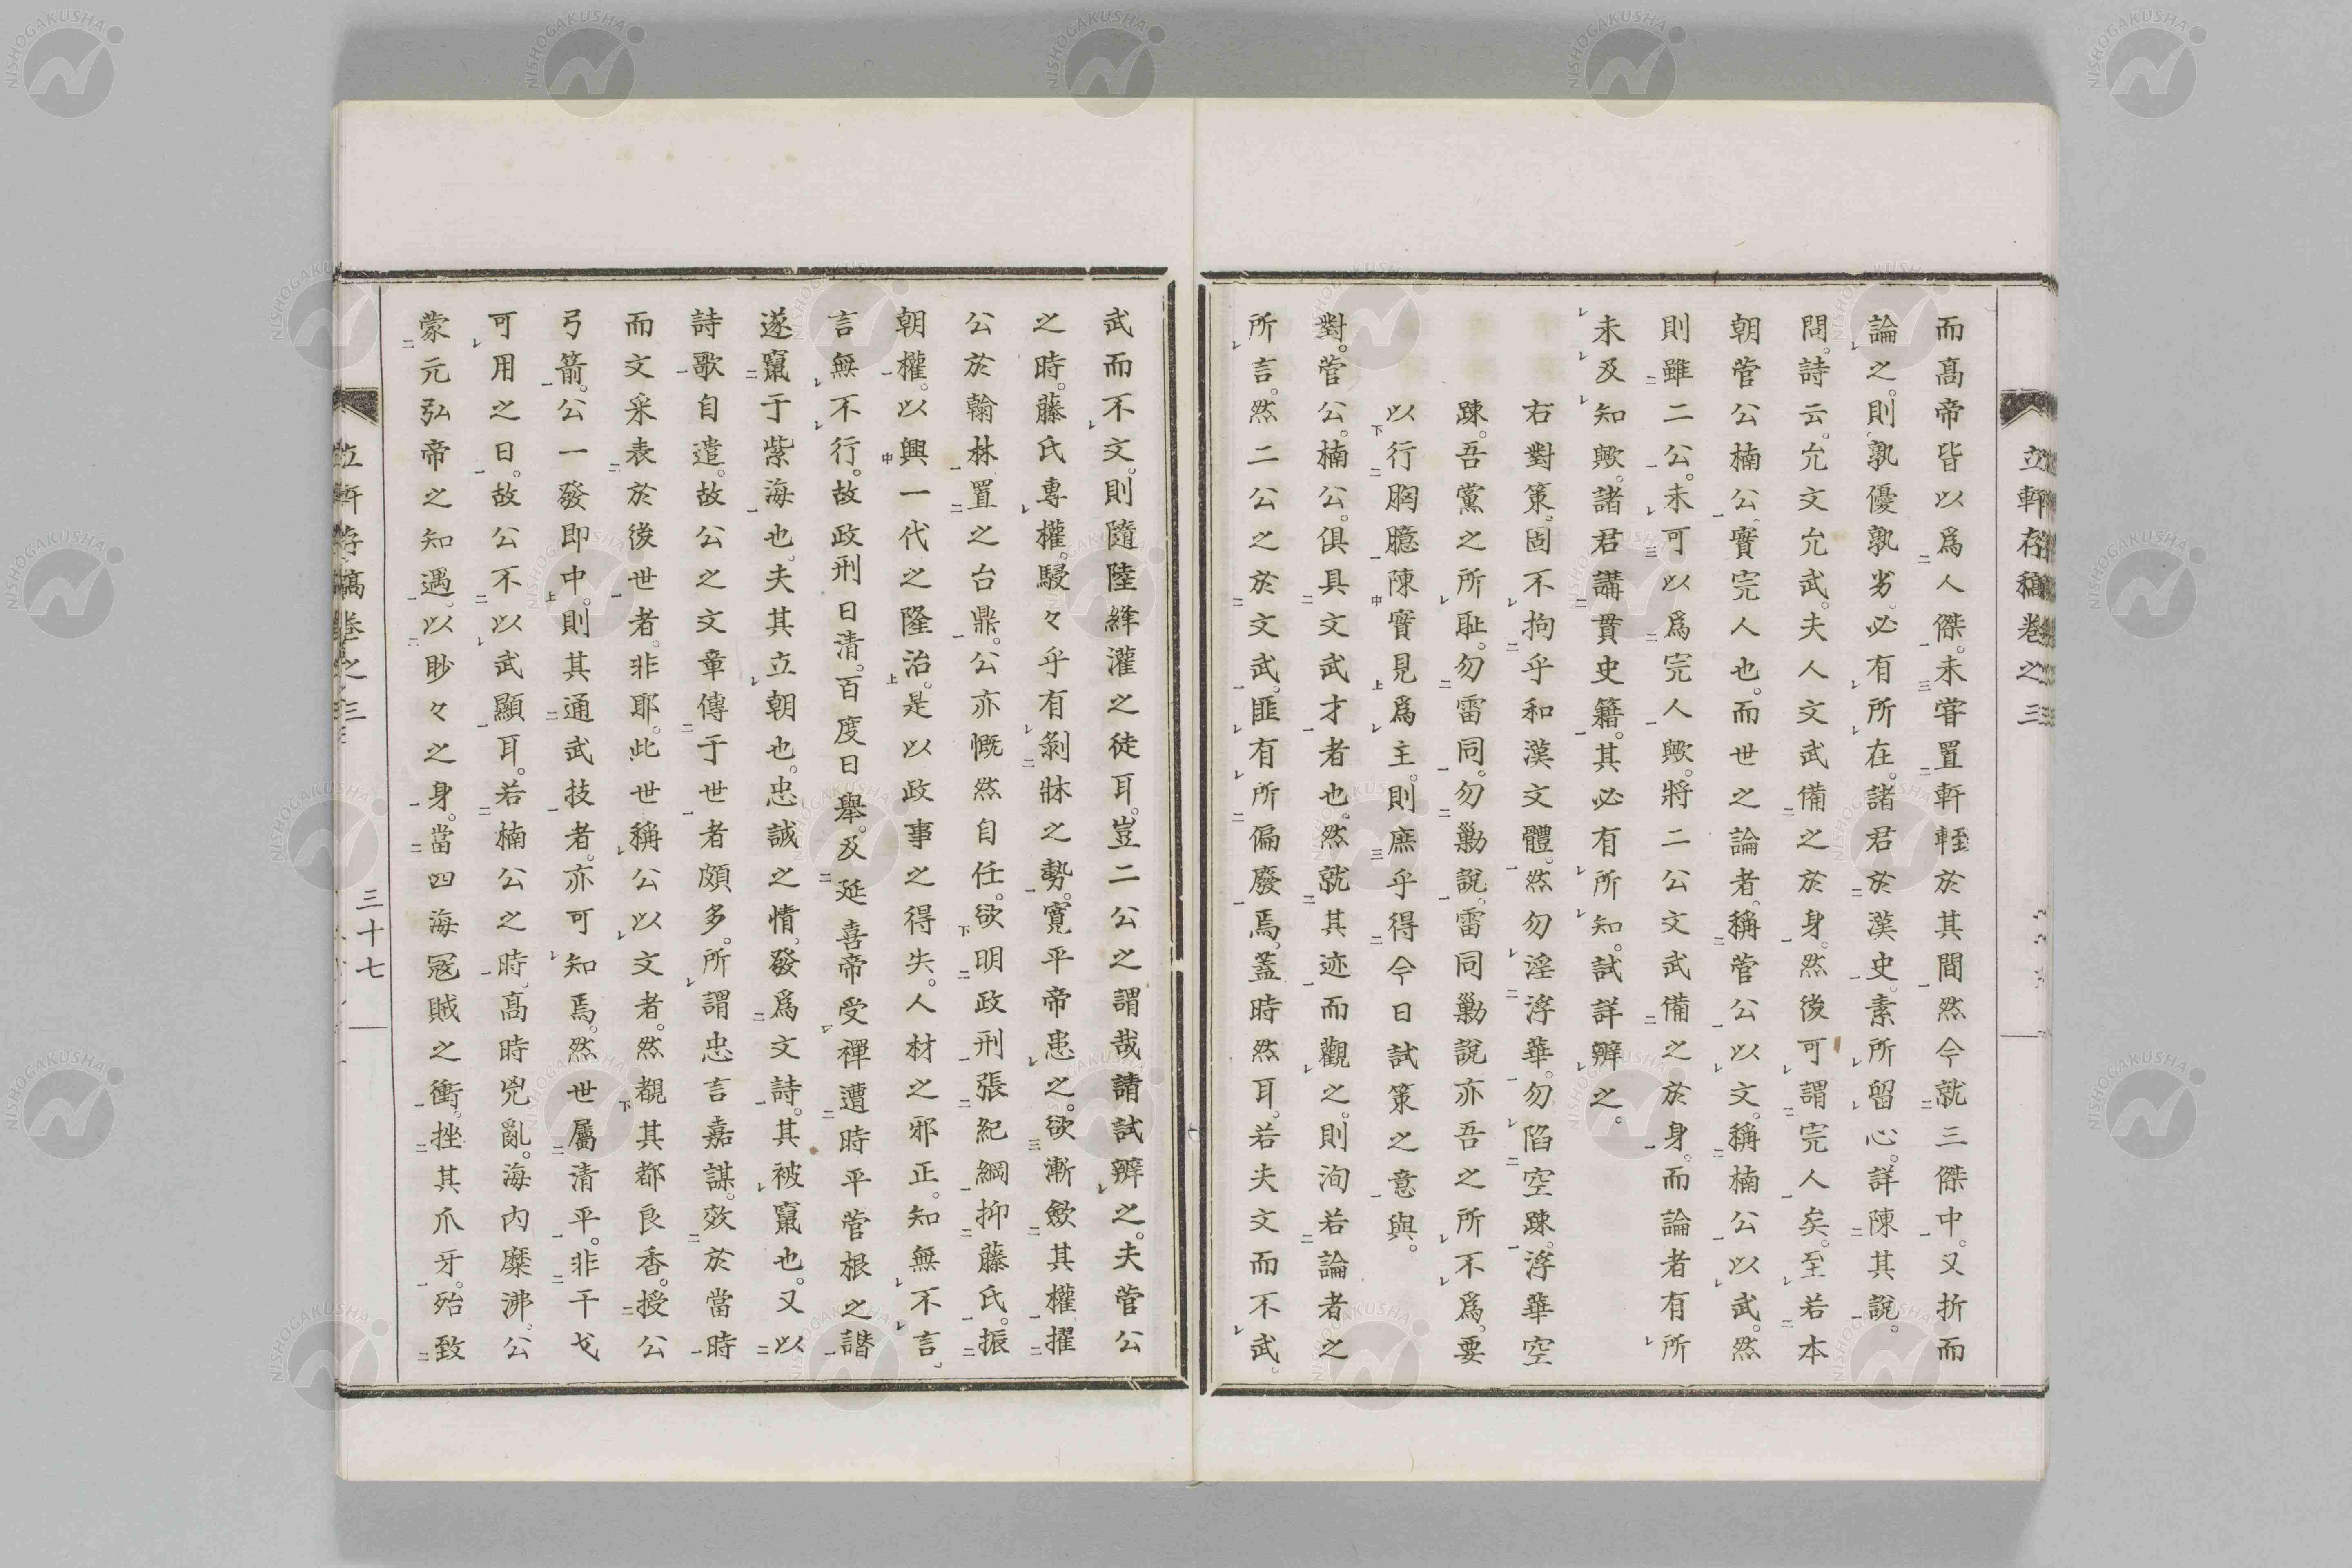 立軒存稿卷之三
而高帝皆以爲人傑。未甞置軒輊於其間然今就三傑中。又折而
論之。則孰優孰劣。必有所在。諸君於漢史。素所留心。詳陳其說。
問。詩云。允文允武。夫人文武備之於身。然後可謂完人矣。至若本
朝菅公楠公。實完人也。而世之論者。稱菅公以文。稱楠公以武。然
則雖二公。未可以爲完人歟。將二公文武備之於身。而論者有所
未及知歟。諸君講貫史籍。其必有所知。試詳辨之。
右對策。固不拘乎和漢文體。然勿淫浮華。勿陷空踈。浮華空
踈。吾黨之所恥。勿雷同。勿勦說。雷同勦說亦吾之所不爲。要
以行胸臆陳實見爲主。則庶乎得今日試策之意與。
對。菅公。楠公。俱具文武才者也。然就其迹而觀之。則洵若論者之
所言。然二公之於文武。匪有所偏廢焉。蓋時然耳。若夫文而不武。
武而不文。則隨陸絳灌之徒耳。豈二公之謂哉請試辨之。夫菅公
之時。藤氏專權。駸々乎有剝牀之勢。寬平帝患之。欲漸斂其權擢
公於翰林置之台鼎。公亦慨然自任。欲明政刑張紀綱抑藤氏。振
朝權。以興一代之隆治。是以政事之得失。人材之邪正。知無不言。
言無不行。故政刑日清。百度日舉。及延喜帝受禪遭時平菅根之譖
遂竄于紫海也。夫其立朝也。忠誠之情。發爲文詩。其被竄也。又以
詩歌自遣。故公之文章傳于世者頗多。所謂忠言嘉謀。效於當時
而文采表於後世者。非耶。此世稱公以文者。然覩其都良香。授公
弓箭。公一發即中。則其通武技者。亦可知焉。然世屬清平。非干戈
可用之日。故公不以武顯耳。若楠公之時。高時兇亂。海内糜沸。公
蒙元弘帝之知遇。以眇々之身。當四海冦賊之衝。挫其爪牙。殆致
立軒存稿卷之三
三十七
NISHOGAKUSHA